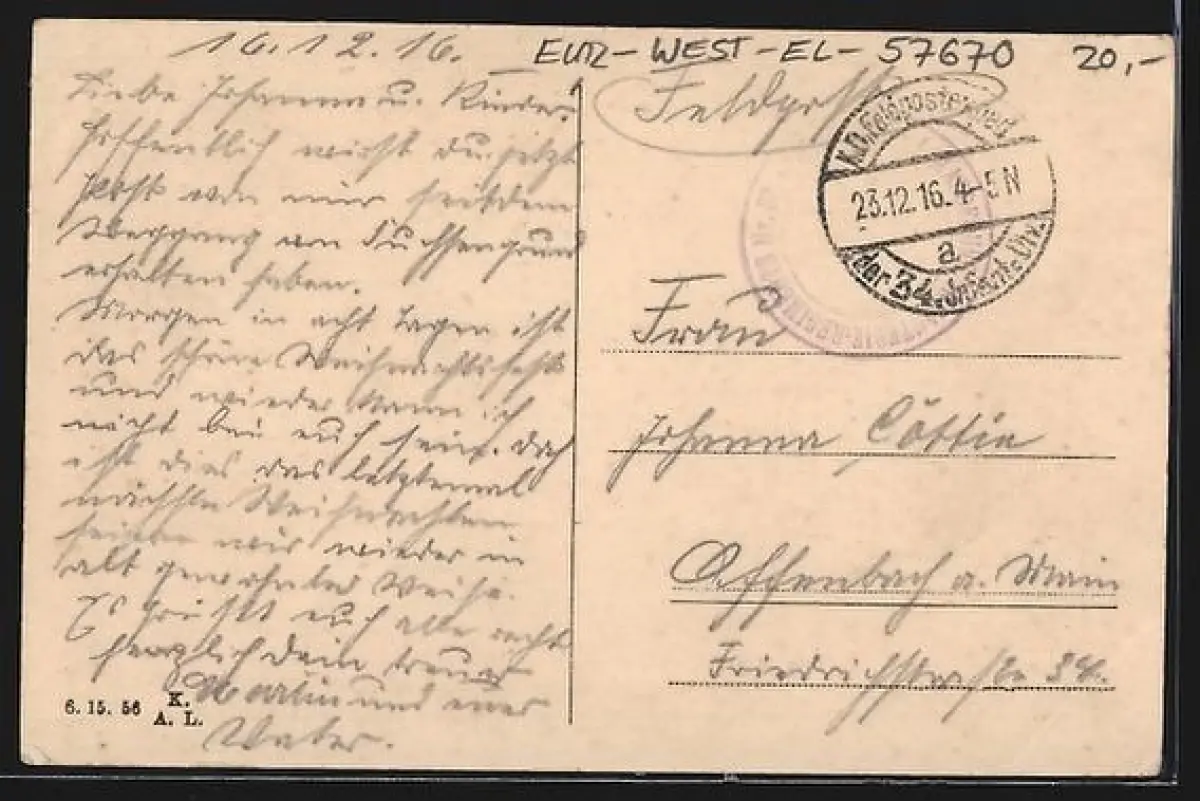 16.12.16.
EUR-WEST-EL-57670 20,-
Liebe Johanna u. Kinder.
Hoffentlich wirst du jetzt
Post von mir seit dem
Weggang von Fuchsengrund
erhalten haben.
Morgen in acht Tagen ist
das schöne Weihnachtsfest
und wieder kann ich
nicht bei euch sein. Doch
ist dies das letztemal
nächste Weihnachten
feiern wir wieder in
alt gewohnter Weise.
Es grüßt euch alle recht
herzlich dein treuer
Martin und euer
Vater.
6. 15. 56 K.
A. L.
Feldpost
K.D. Feldpostexped.
23.12.16. 4-5 N
a
der 34. Infant. Div.
Frau
Johanna
Offenbach a. Main
Friedrichstraße 34.